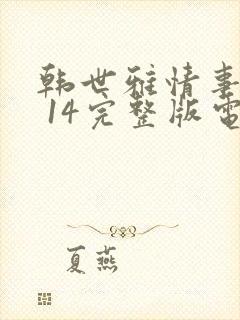 韩世雅情事
14完整版電
夏燕